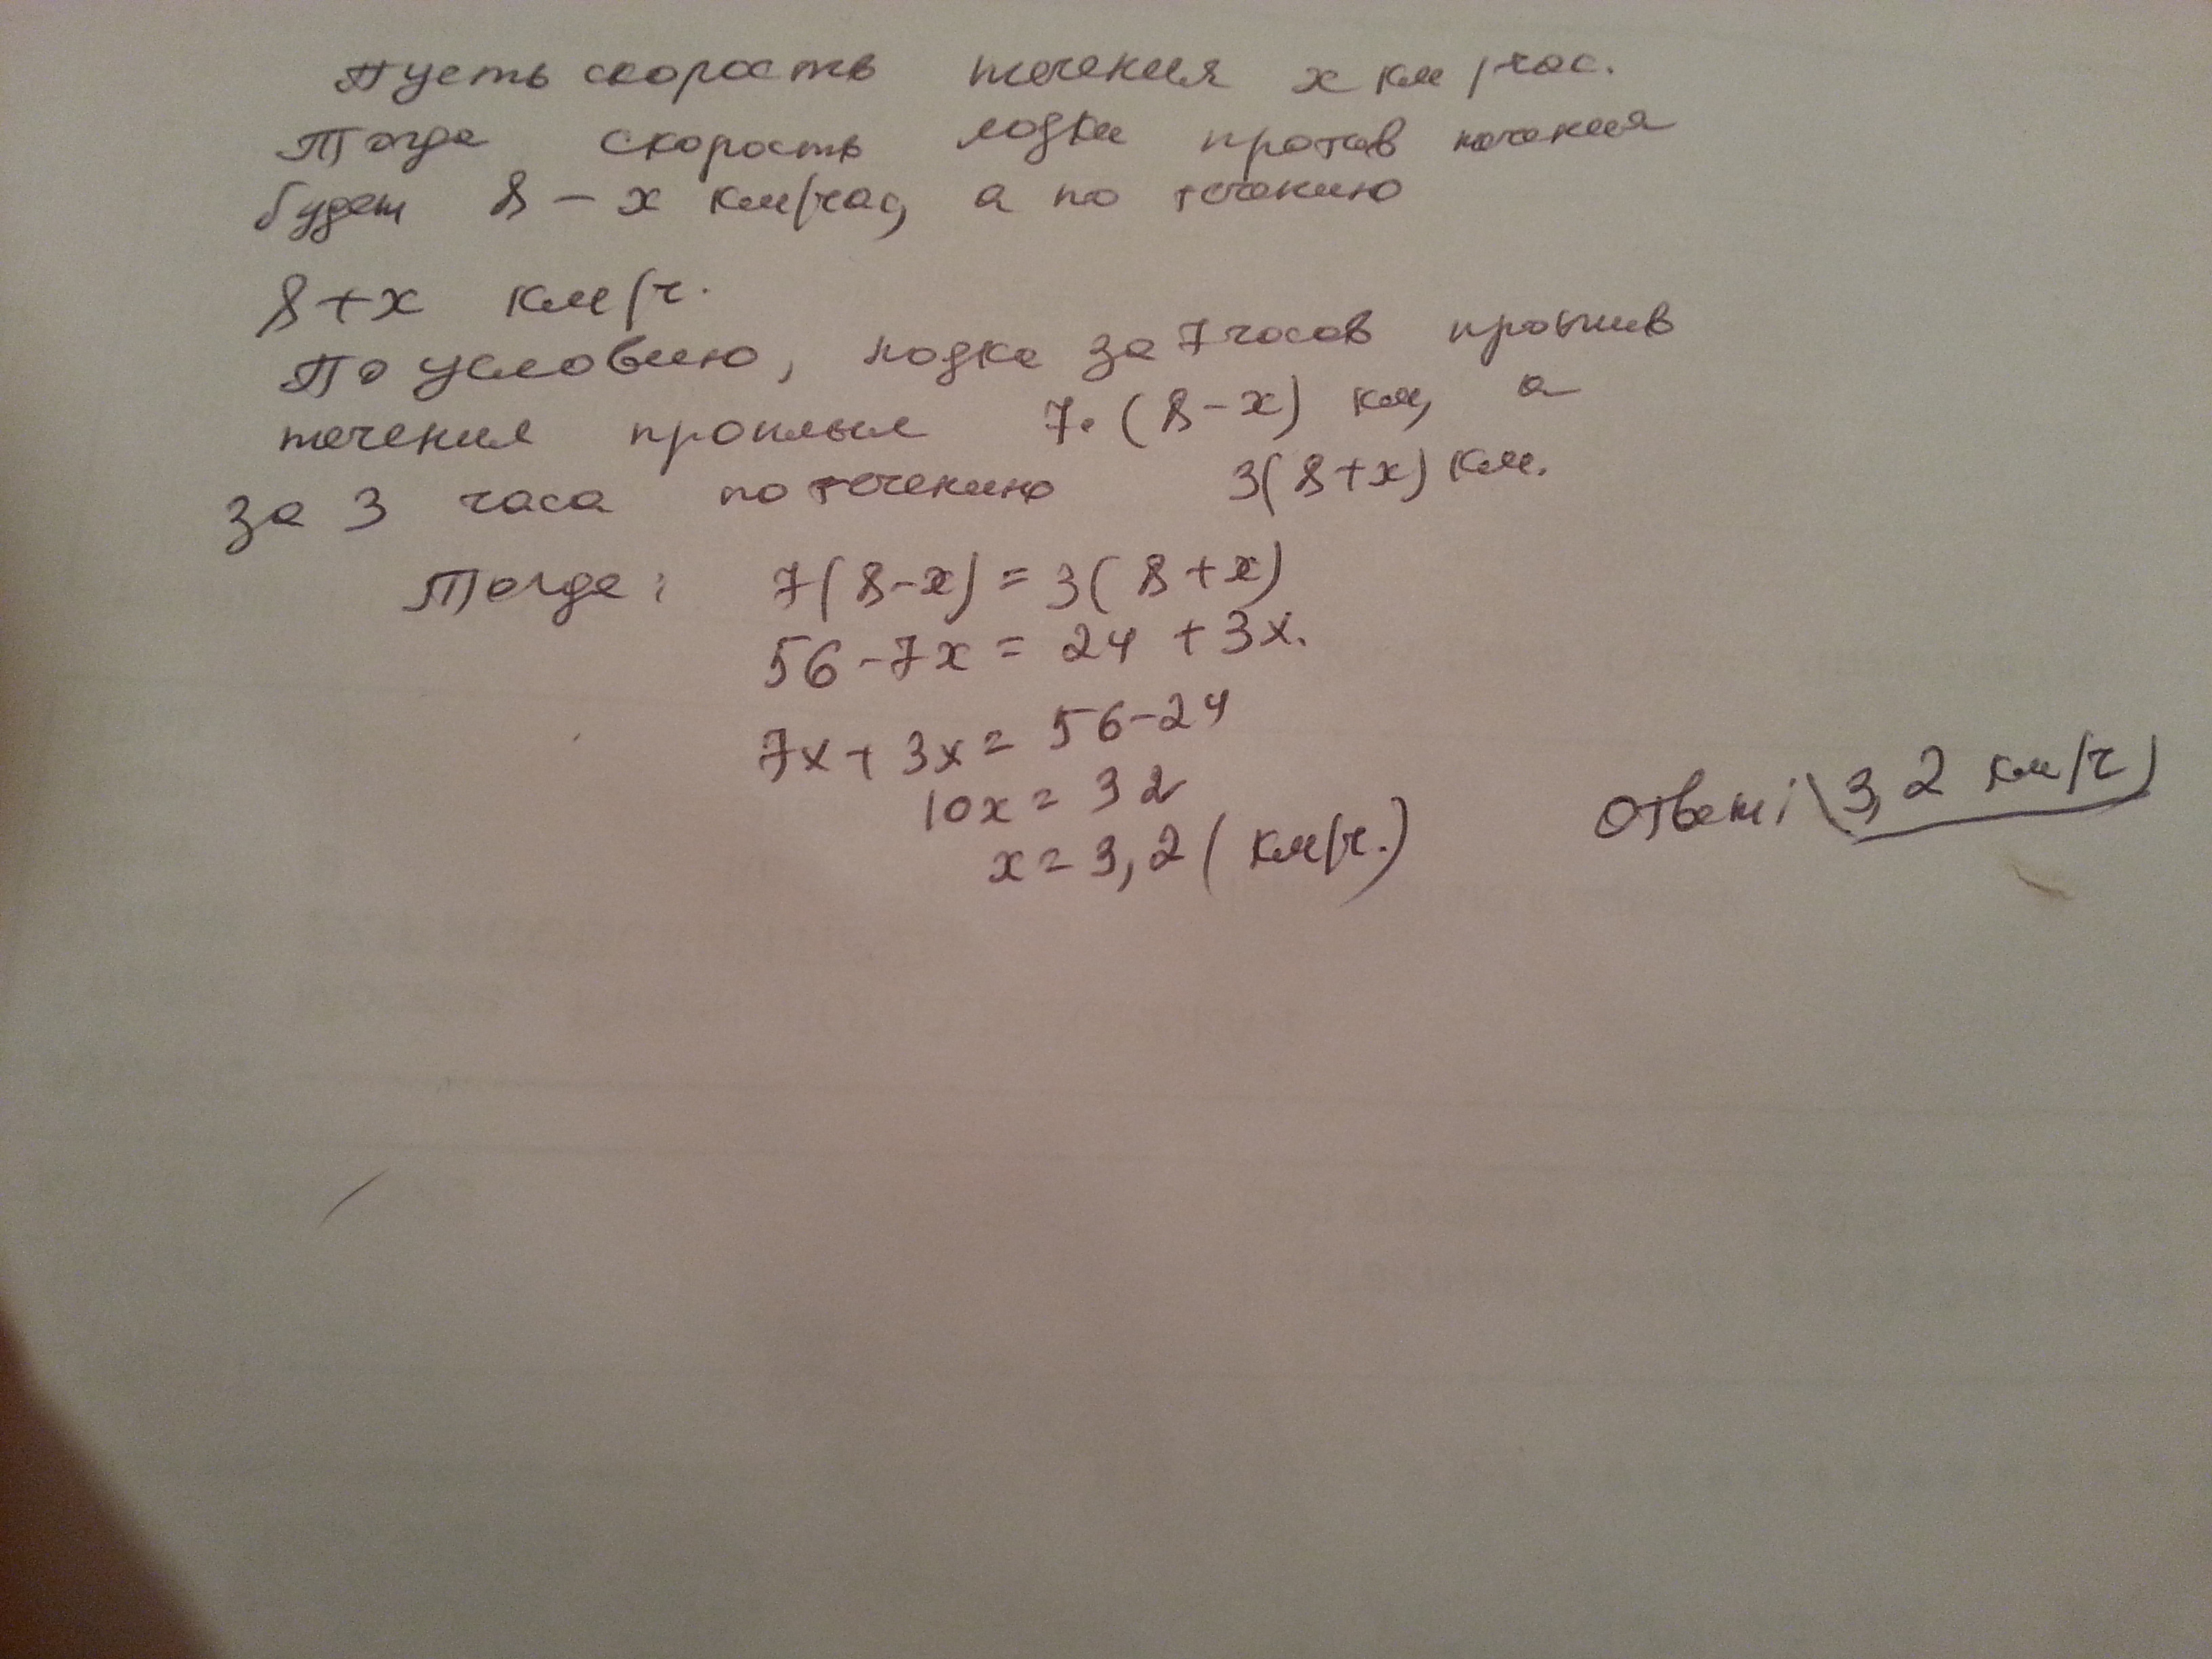 Пусть скорость течения х км/час.
Тогда скорость лодки против течения
будет 8 – х км/час, а по течению
8+х км/ч.
По условию, лодка за 7 часов против
течения проплыла 7·(8-х) км, а
за 3 часа по течению 3(8+х) км.
Тогда: 7(8-х) = 3(8+х)
56-7х = 24 + 3х.
7х + 3х = 56-24
10х = 32
х = 3,2 (км/ч.)
Ответ: 3,2 км/ч